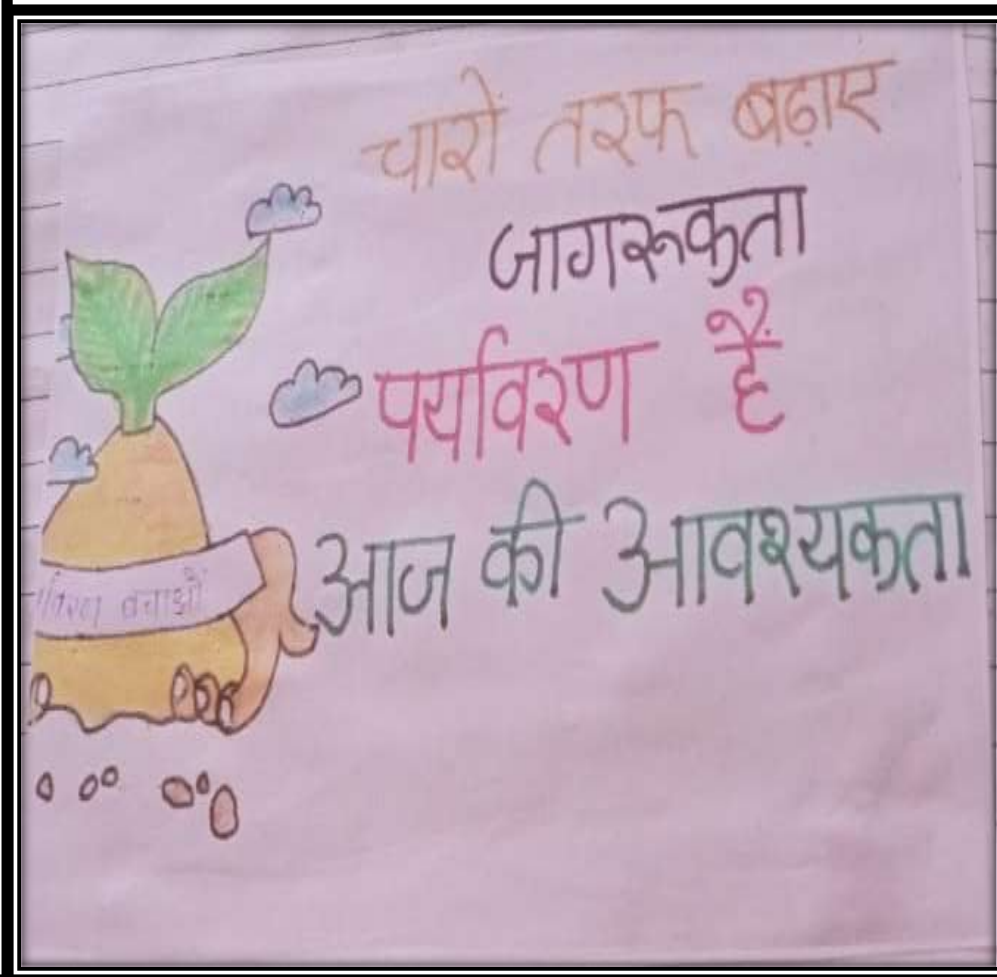 चारों तरफ बढ़ाए
जागरूकता
पर्यावरण हैं
आज की आवश्यकता
बचाओ